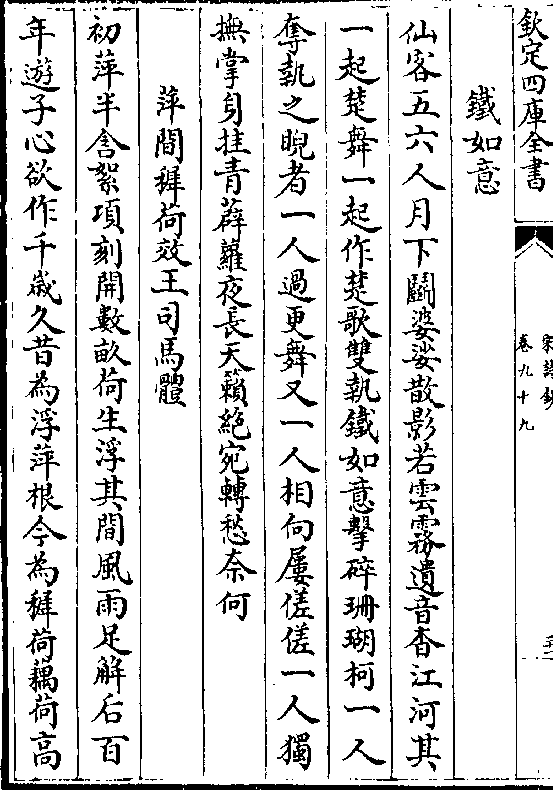 欽定四庫全書
宋詩鈔
卷九十九
鐵如意
仙客五六人月下鬬婆娑散影若雲霧遺音杳江河其
一起楚舞一起作楚歌雙執鐵如意擊碎珊瑚柯一人
奪執之睨者一人過更舞又一人相向屢傞傞一人獨
撫掌身挂青薜蘿夜長天籟絶宛轉愁奈何
萍間穉荷效王司馬體
初萍半含絮項刻開數畝荷生浮其間風雨足解后百
年遊子心欲作千歳久昔為浮萍根今為穉荷藕荷高